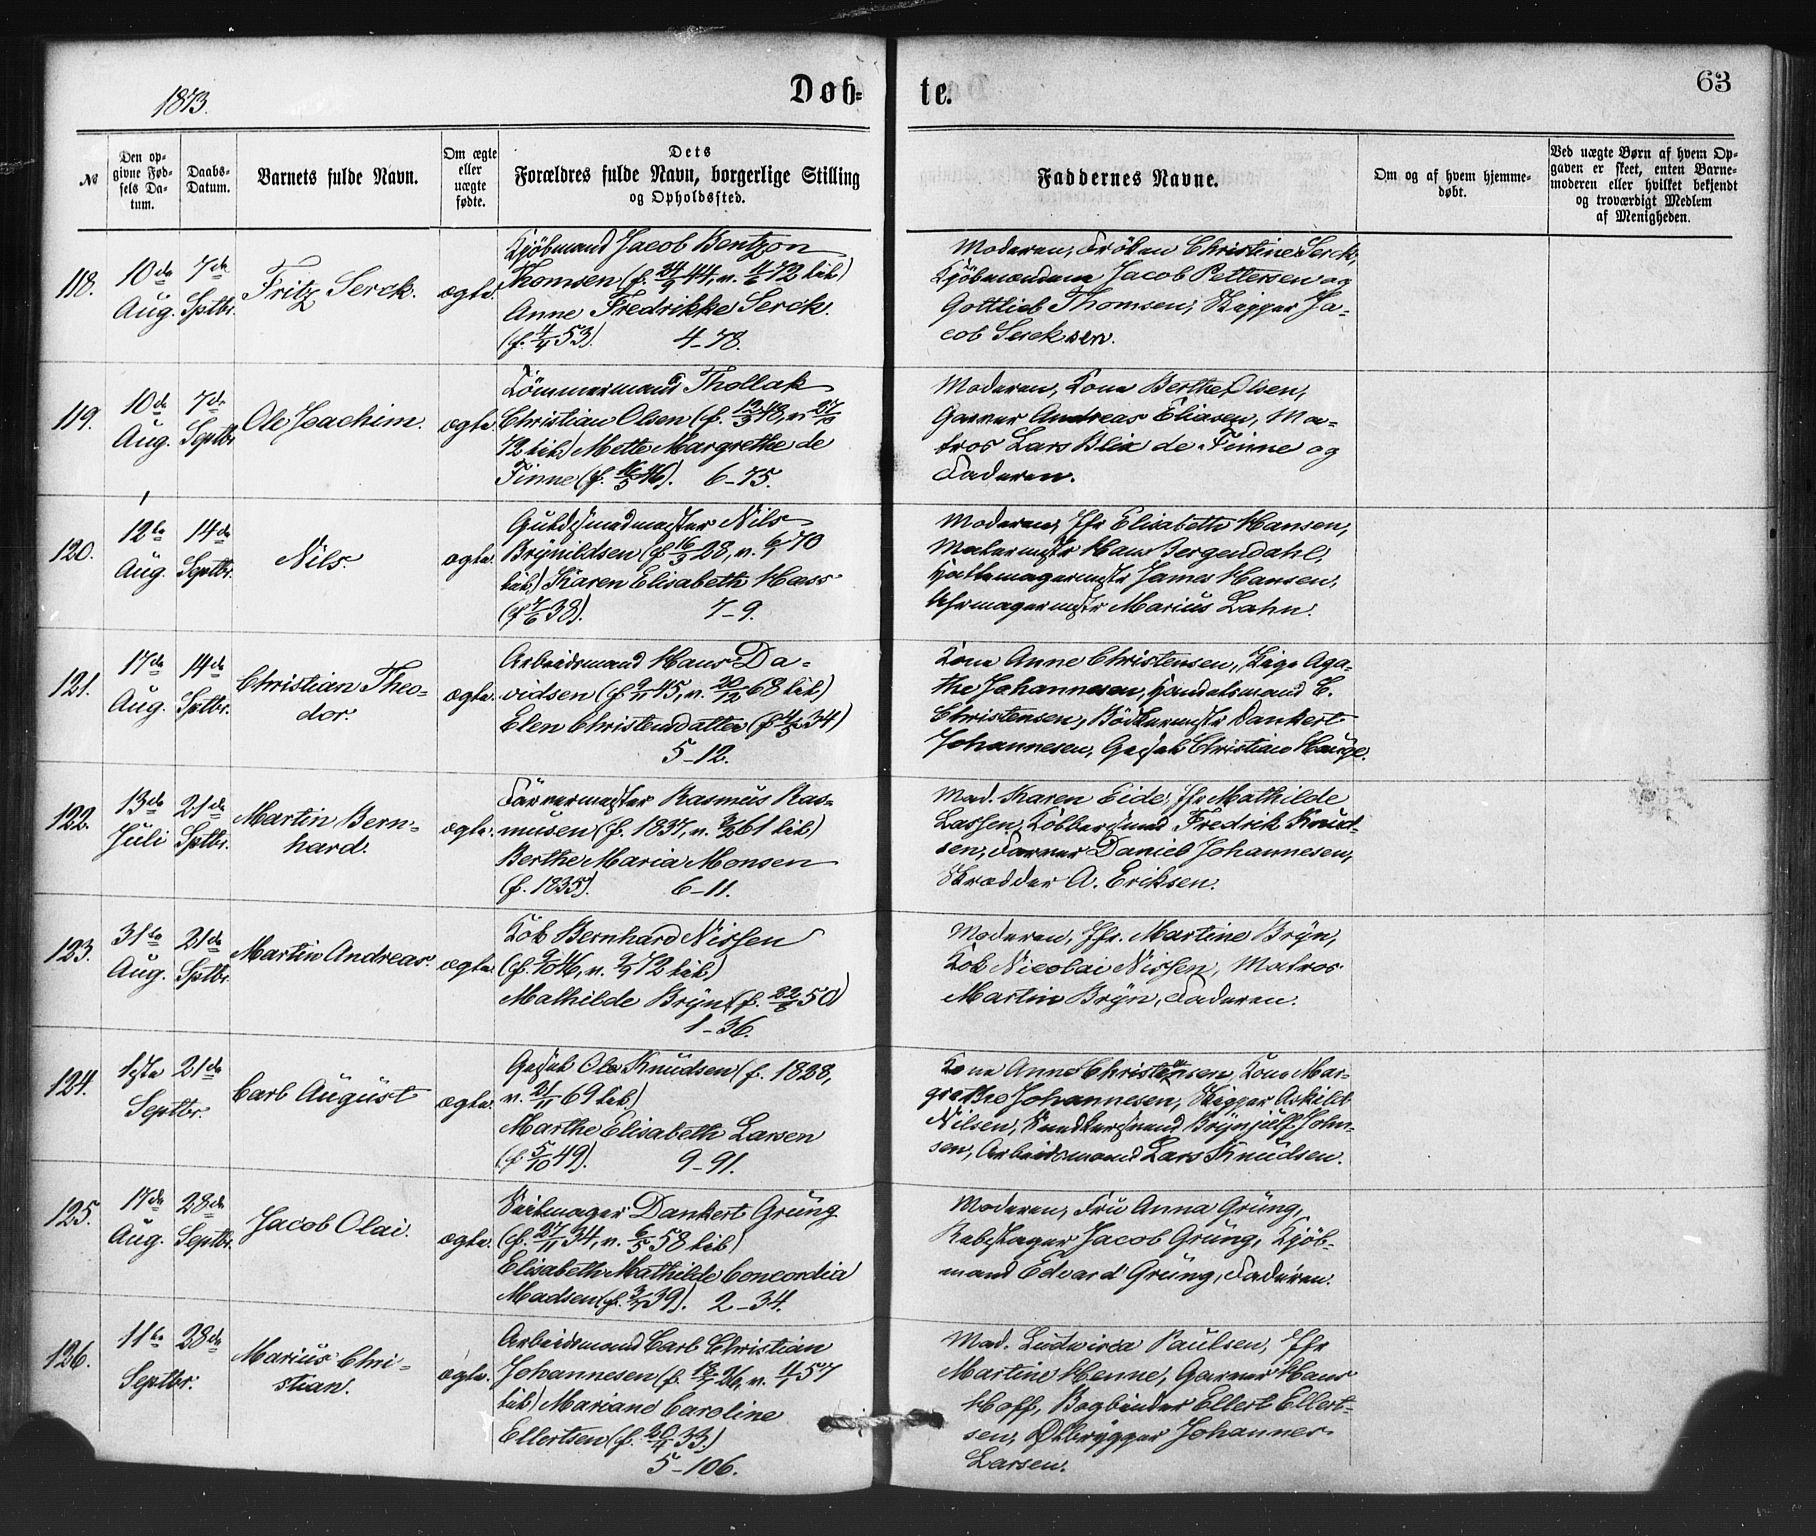 1873.
Døb-
te.
63
№
Den op-
givne Fød-
sels Da-
tum.
Daabs-
Datum.
Barnets fulde Navn.
Om ægte
eller
uægte
fødte.
Dets
Forældres fulde Navn, borgerlige Stilling
og Opholdssted.
Faddernes Navne.
Om og af hvem hjemme-
døbt.
Ved uægte Børn af hvem Op-
gaven er skeet, enten Barne-
moderen eller hvilket bekjendt
og troværdigt Medlem
af Menigheden.
118.
10de
Aug.
7de
Sptbr.
Fritz Serck.
ægte.
Kjöbmand Jacob Bentzon
Thomsen (f. 24/9 44, v. 4/6 72 her)
Anne Fredrikke Serck.
(f. 4/4 53). 4-78.
Moderen, Fröken Christine Serck,
Kjöbmændene Jacob Pettersen og
Gottlieb Thomsen, Skipper Ja-
cob Sercksen.
119.
10de
Aug.
7de
Septbr.
Ole Joachim.
ægte.
Tömmermand Thollak
Christian Olsen (f. 12/3 48, v. 27/10
72 her) Mette Margrethe de
Finne (f. 16/5 46). 6-75.
Moderen, Kone Berthe Olsen,
Garver Andreas Eliasen, Ma-
tros Lars Blix de Finne og
Faderen.
120.
12te
Aug.
14de
Septbr.
Nils.
ægte.
Guldsmedmester Nils
Brynildsen (f 16/3 28, v. 6/1 70
her) Karen Elisabeth Hass
(f 7/6 38). 7-9.
Moderen, Jfr Elisabeth Hansen,
Malermstr Hans Bergendahl,
Hattemagermstr James Hansen,
Uhrmagermstr Marius Lahn.
121.
17de
Aug.
14de
Sptbr.
Christian Theo-
dor.
ægte.
Arbeidsmand Hans Da-
vidsen (f 9/11 45, v. 20/12 68 her)
Elen Christensdatter (f 4/5 34)
5-12.
Kone Anne Christensen, Pige Aga-
the Johannesen, Handelsmand C.
Christensen, Bödkermstr Dankert
Johannesen, Gesel Christian Hauge.
122.
13de
Juli
21de
Sptbr.
Martin Bern-
hard.
ægte.
Farvermester Rasmus Ras-
musen (f. 1837, v. 3/2 61 her)
Berthe Maria Monsen
(f. 1835). 6-11.
Mad. Karen Eide, Jfr Mathilde
Lassen, Kobbersmed Fredrik Knud-
sen, Farver Daniel Johannesen,
Skrædder A. Eriksen.
123.
31te
Aug.
21de
Sptbr.
Martin Andreas.
ægte.
Kok Bernhard Nissen
(f. 9/10 46, v. 2/7 72 her)
Mathilde Bryn (f. 22/6 50)
1-36.
Moderen, Jfr. Martine Bryn,
Kok Nicolai Nissen, Matros
Martin Bryn, Faderen.
124.
1ste
Septbr.
21de
Carl August
ægte.
Gesel Ole Knudsen (f. 1828,
v. 21/11 69 her)
Marthe Elisabeth Larsen
(f. 5/10 49). 9-91.
Kone Anne Christensen, Kone Mar-
grethe Johannesen, Skipper Askild
Nilsen, Snedkersvend Brynjulf John-
sen, Arbeidsmand Lars Knudsen.
125.
17de
Aug.
28de
Septbr.
Jacob Olai.
ægte.
Seilmager Dankert Grung
(f. 27/11 34, v. 6/5 58 her)
Elisabeth Mathilde Concordia
Madsen (f. 3/7 39). 2-34.
Moderen, Fru Anna Grung,
Rebslager Jacob Grung, Kjöb-
mand Edvard Grung, Faderen.
126.
11te
Septbr.
28de
Marius Chri-
stian.
ægte.
Arbeidsmand Carl Christian
Johannesen (f. 12/7 26, v. 4/1 57
her) Mariane Caroline
Ellertsen (f. 20/4 33.)
5-106.
Mad. Ludwica Paulsen, Jfr
Martine Henne, Garver Hans
Hoff, Bogbinder Ellert Ellert-
sen, Ølbrygger Johannes
Larsen.